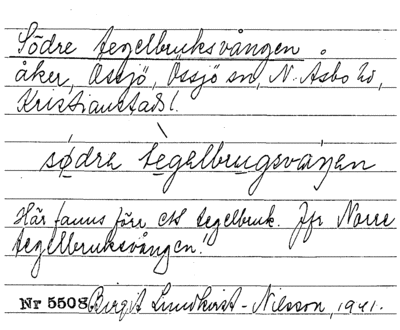 Södre tegelbruksvången
åker, Össjö, Össjö sn, N. Åsbo hd,
Kristianstads l.
sødre tègelbrugsvåŋen
Här fanns förr ett tegelbruk. Jfr Norre
tegelbruksvången!
Nr 5508. Birgit Lundkvist-Nilsson, 1941.